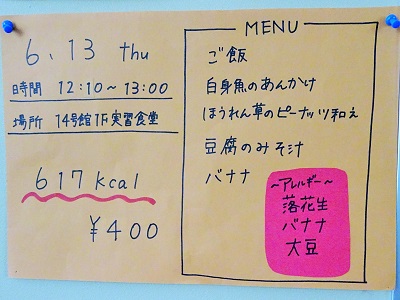 6.13 thu
時間 12:10～13:00
場所 14号館1F実習食堂
617kcal
¥400
MENU
ご飯
白身魚のあんかけ
ほうれん草のピーナッツ和え
豆腐のみそ汁
バナナ
～アレルギー～
落花生
バナナ
大豆